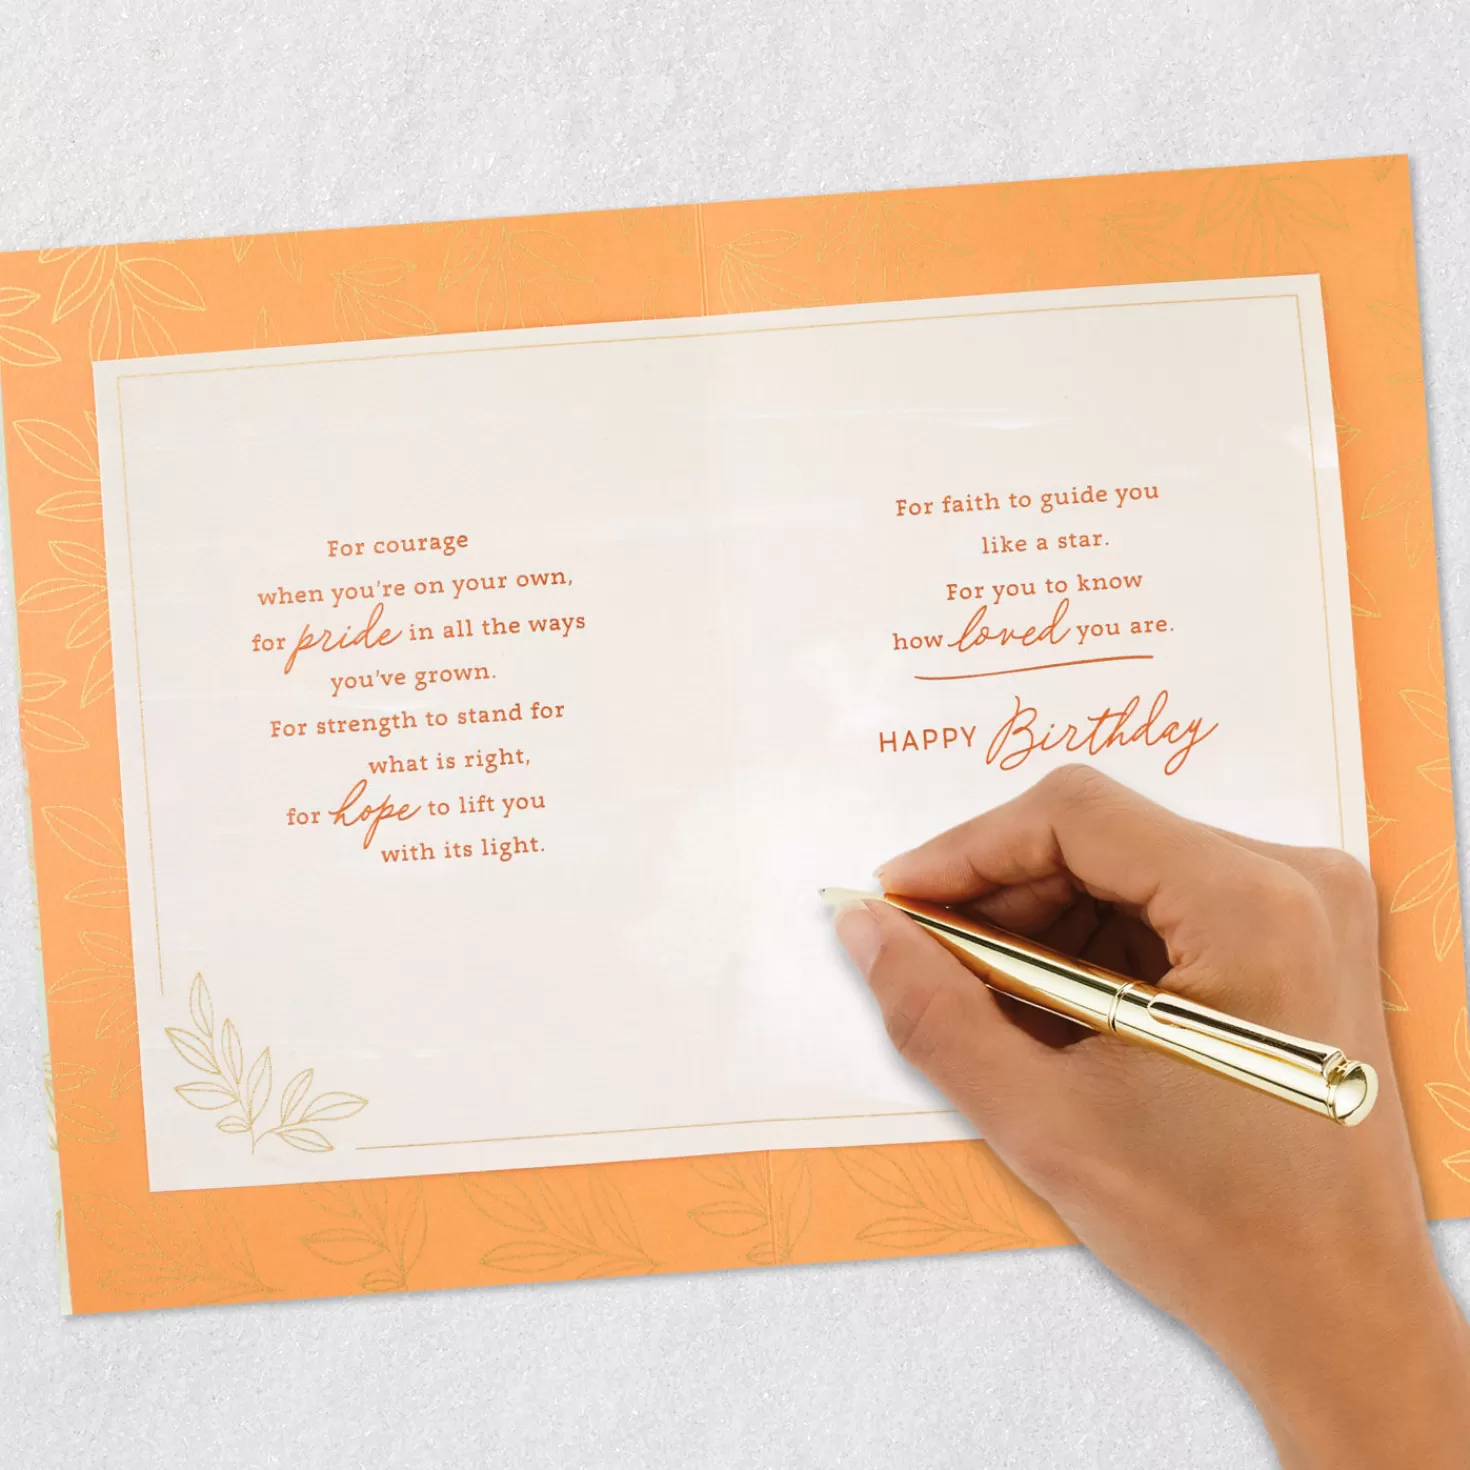 For courage
when you're on your own,
for pride in all the ways
you've grown.
For strength to stand for
what is right,
for hope to lift you
with its light.
For faith to guide you
like a star.
For you to know
how loved you are.
HAPPY Birthday